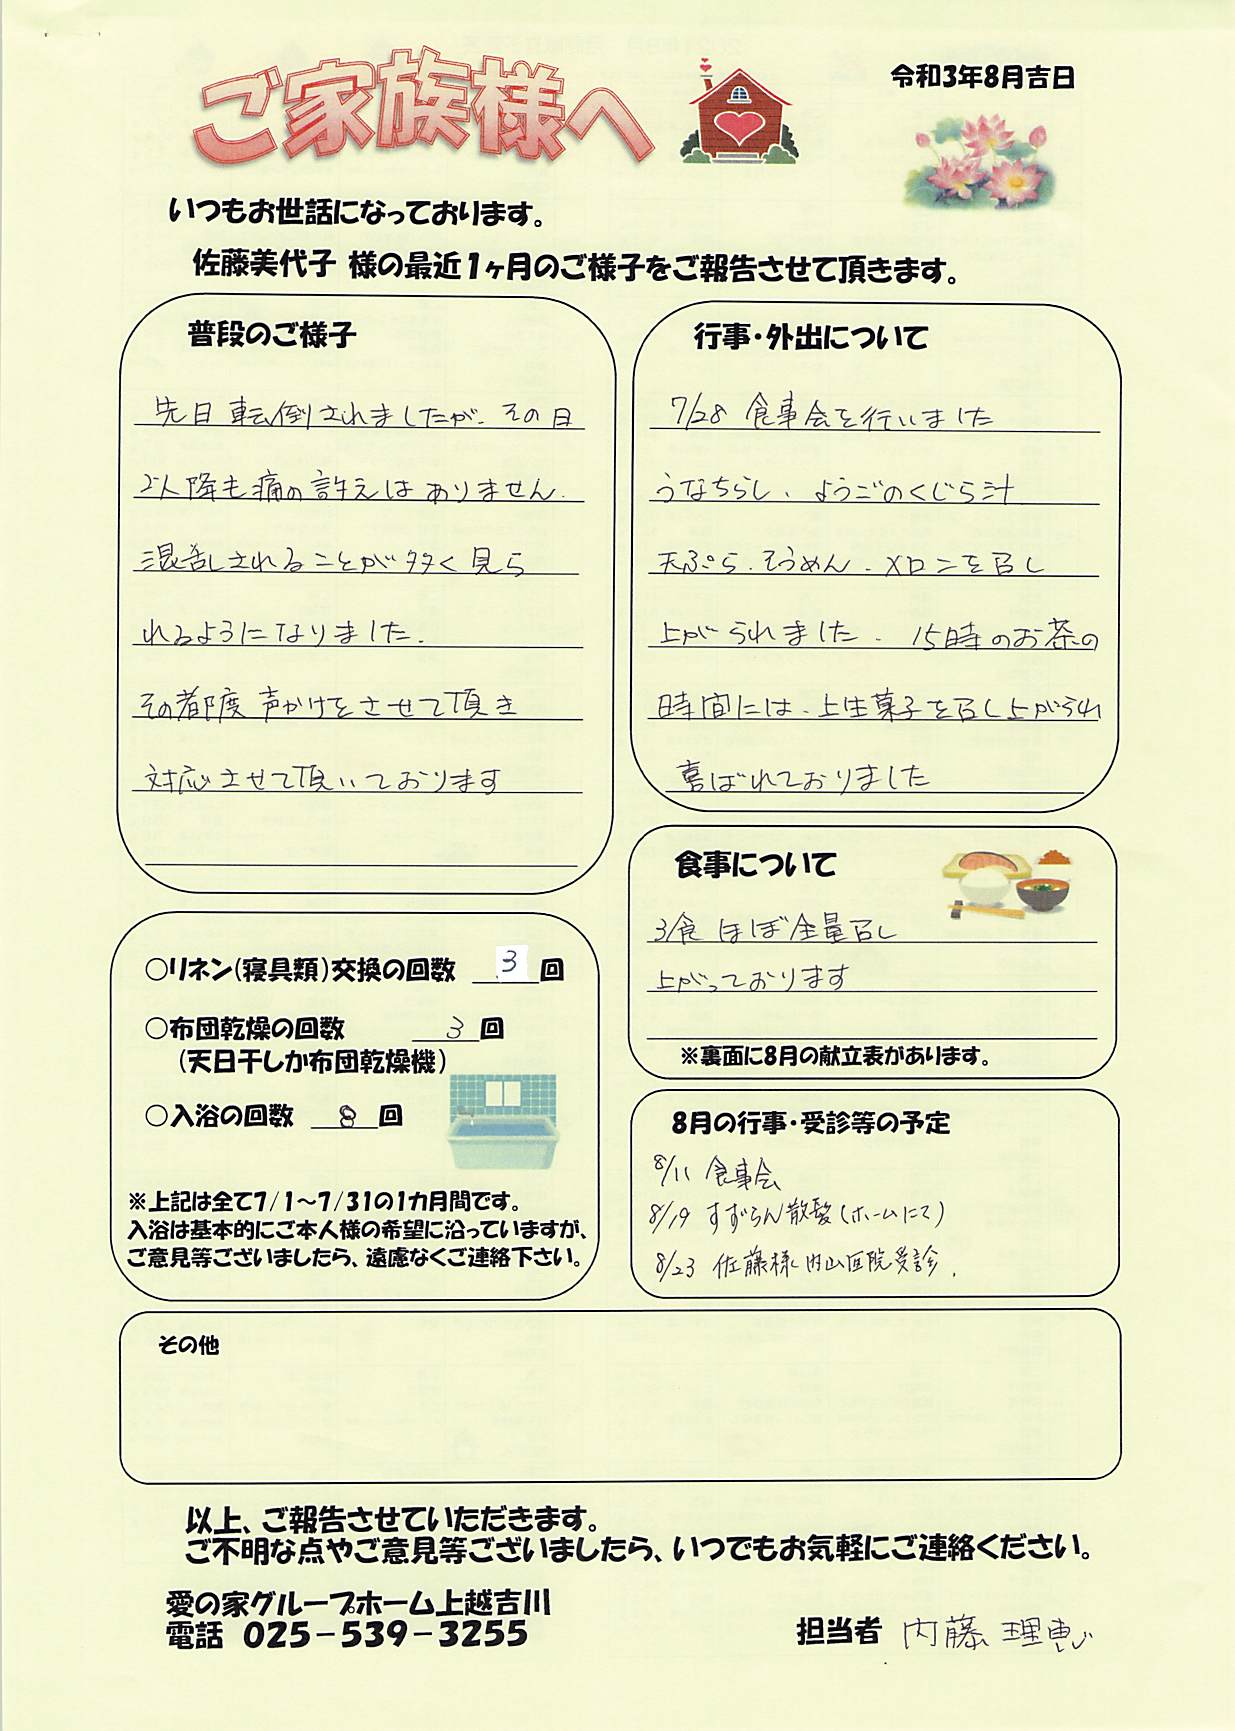 ご家族様へ
令和3年8月吉日
いつもお世話になっております。
佐藤美代子 様の最近1ヶ月のご様子をご報告させて頂きます。
普段のご様子
先日転倒されましたが、その日
以降も痛の訴えはありません.
混乱されることが多く見ら
れるようになりました.
その都度声かけをさせて頂き
対応させて頂いております
行事・外出について
7/28 食事会を行いました
うなちらし、ようごのくじら汁
天ぷら、そうめん、メロンを召し
上がられました. 15時のお茶の
時間には、上生菓子を召し上がられ
喜ばれておりました
食事について
3食ほぼ全量召し
上がっております
※裏面に8月の献立表があります。
○リネン(寝具類)交換の回数 3 回
○布団乾燥の回数 3 回
(天日干しか布団乾燥機)
○入浴の回数 8 回
※上記は全て7/1~7/31の1カ月間です。
入浴は基本的にご本人様の希望に沿っていますが、
ご意見等ございましたら、遠慮なくご連絡下さい。
8月の行事・受診等の予定
8/11 食事会
8/19 すずらん散髪(ホームにて)
8/23 佐藤様 内山医院受診.
その他
以上、ご報告させていただきます。
ご不明な点やご意見等ございましたら、いつでもお気軽にご連絡ください。
愛の家グループホーム上越吉川
電話 025-539-3255
担当者 内藤 理恵